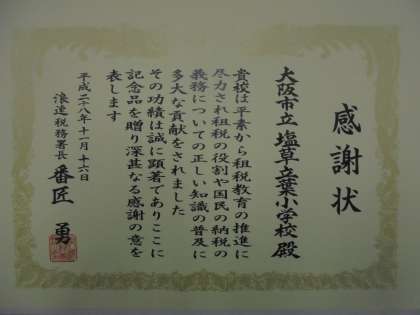 感謝状
大阪市立 塩草立葉小学校 殿
貴校は平素から租税教育の推進に
尽力され租税の役割や国民の納税の
義務についての正しい知識の普及に
多大な貢献をされました
その功績は誠に顕著でありここに
記念品を贈り深甚なる感謝の意を
表します
平成二十八年十一月十六日
浪速税務署長 番匠 勇